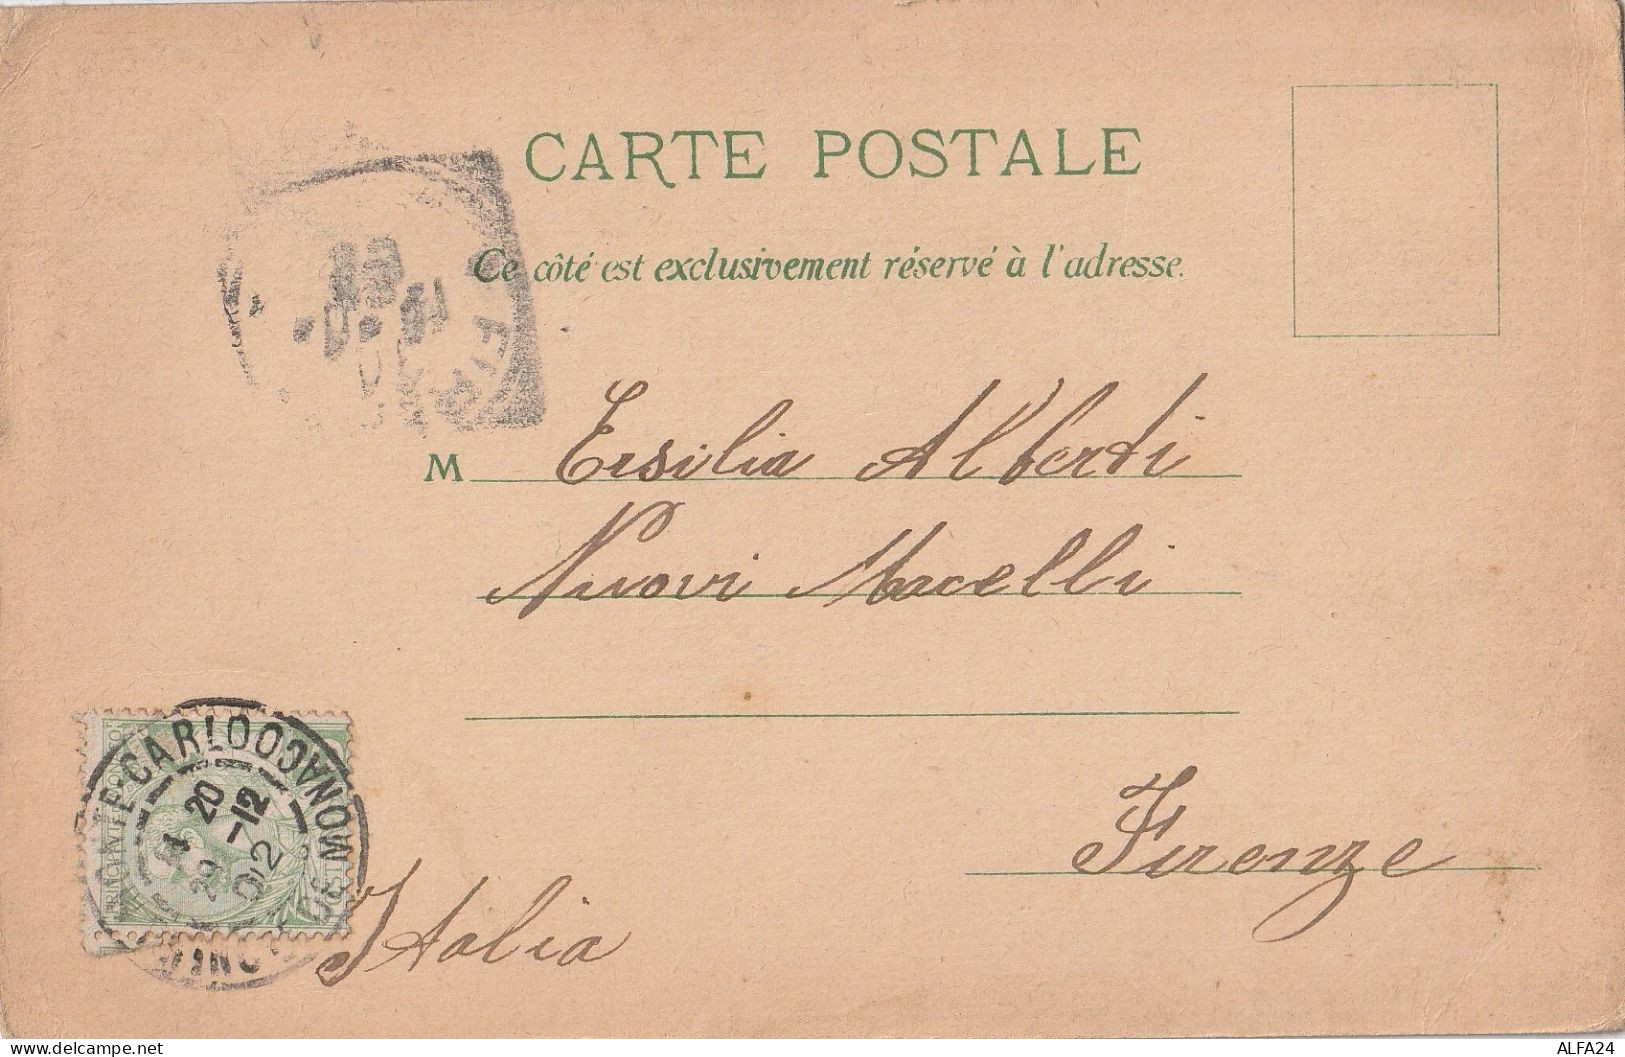 CARTE POSTALE
Ce côté est exclusivement réservé à l'adresse.
M Ersilia Alberti
Nuovi Macelli
Firenze
Italia
MONTE-CARLO MONACO
20
29 -12
02
delcampe.net
ALFA24